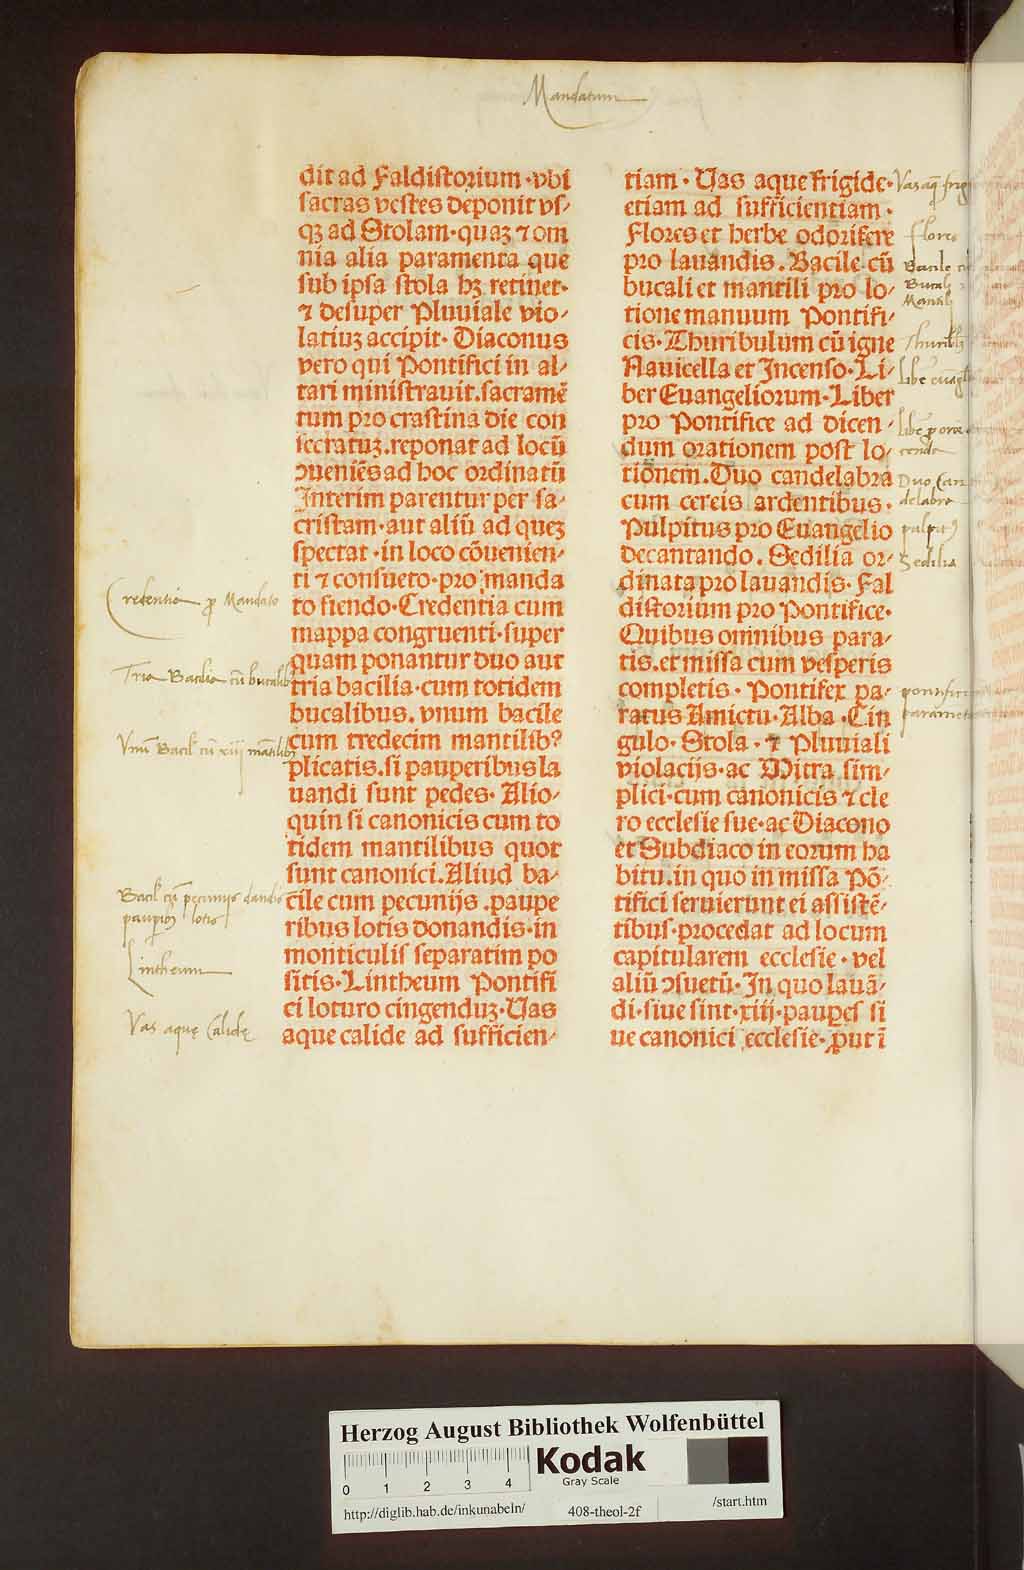 Mandatum
dit ad Faldistorium·vbi
sacras vestes deponit vs-
qꝫ ad Stolam·quaꝫ ⁊ om
nia alia paramenta que
sub ipsa stola hꝫ retinet·
⁊ desuper Pluuiale vio-
latiuꝫ accipit· Diaconus
vero qui Pontifici in al-
tari ministrauit.sacramē
tum pro crastina die con
secratuꝫ.reponat ad locū
ꝯueniēs ad hoc ordinatū
Interim parentur per sa-
cristam·aut aliū ad queꝫ
spectat·in loco cōuenien-
ti ⁊ consueto·pro manda
to fiendo·Credentia cum
mappa congruenti·super
quam ponantur duo aut
tria bacilia·cum totidem
bucalibus. vnum bacile
cum tredecim mantilibꝰ
plicatis.si pauperibus la
uandi sunt pedes· Alio-
quin si canonicis cum to
tidem mantilibus quot
sunt canonici. Aliud ba-
cile cum pecunijs .paupe
ribus lotis donandis·in
monticulis separatim po
sitis·Lintheum Pontifi
ci loturo cingenduꝫ·Uas
aque calide ad sufficien-
Credentia ꝓ Mandato
Tria Bacilia cū bucalibꝫ
Vnū Bacil cū xiij mātilibꝫ
Bacil cū pecunijs dandis
lotis
Lintheum
Vas aquę Calidę
tiam· Uas aque frigide·
etiam ad sufficientiam·
Flores et herbe odorifere
pro lauandis. Bacile cū
bucali et mantili pro lo-
tione manuum Pontifi-
cis·Thuribulum cū igne
Nauicella et Incenso·Li-
ber Euangeliorum·Liber
pro Pontifice ad dicen-
dum orationem post lo-
tionem. Duo candelabra
cum cereis ardentibus·
Pulpitus pro Euangelio
decantando. Sedilia or-
dinata pro lauandis· Fal
distorium pro Pontifice·
Quibus omnibus para-
tis.et missa cum vesperis
completis· Pontifex pa-
ratus Amictu·Alba·Cin
gulo·Stola·⁊ Pluuiali
violacijs·ac Mitra sim-
plici·cum canonicis ⁊ cle
ro ecclesie sue·ac Diacono
et Subdiaco in eorum ha
bitu.in quo in missa Pō-
tifici seruierunt ei assistē-
tibus·procedat ad locum
capitularem ecclesie·vel
aliū ꝯsuetū·In quo lauā-
di·siue sint·xiij·pauꝑes si
ue canonici ecclesie·ꝓut ī
Vas aq̄ frig
Flores
Bacile
Bucalj
Mantilj
Duo Can
delabra
Sedilia
Herzog August Bibliothek Wolfenbüttel
Kodak
Gray Scale
0 1 2 3 4
http://diglib.hab.de/inkunabeln/ 408-theol-2f /start.htm